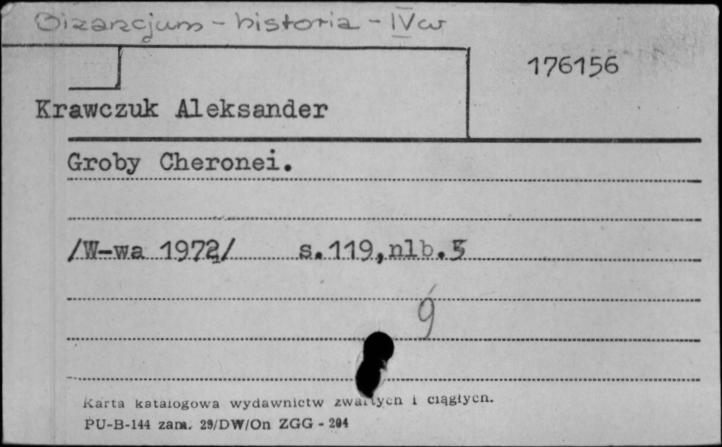 Bizancjum - historia - IV w
176156
Krawczuk Aleksander
Groby Cheronei.
/W-wa 1972/ s.119,nlb.5
9
Karta katalogowa wydawnictw zwartych i ciągłych.
PU-B-144 zam. 29/DW/On ZGG - 204